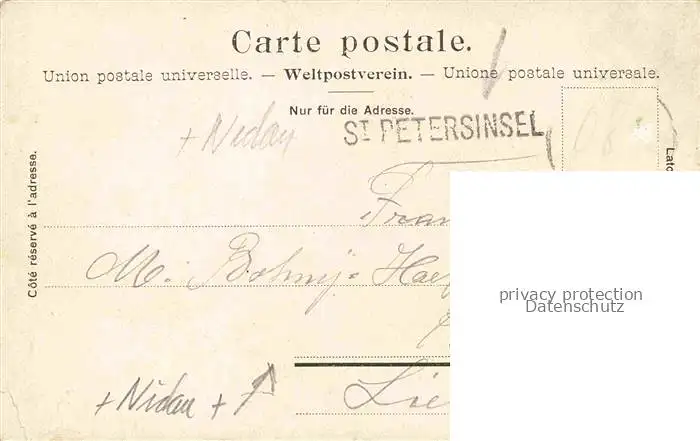 Carte postale.
Union postale universelle. — Weltpostverein. — Unione postale universale.
Nur für die Adresse.
+ Nidau
ST PETERSINSEL
Côté réservé à l'adresse.
Frau
M. Bohny-
privacy protection
Datenschutz
+ Nidau +